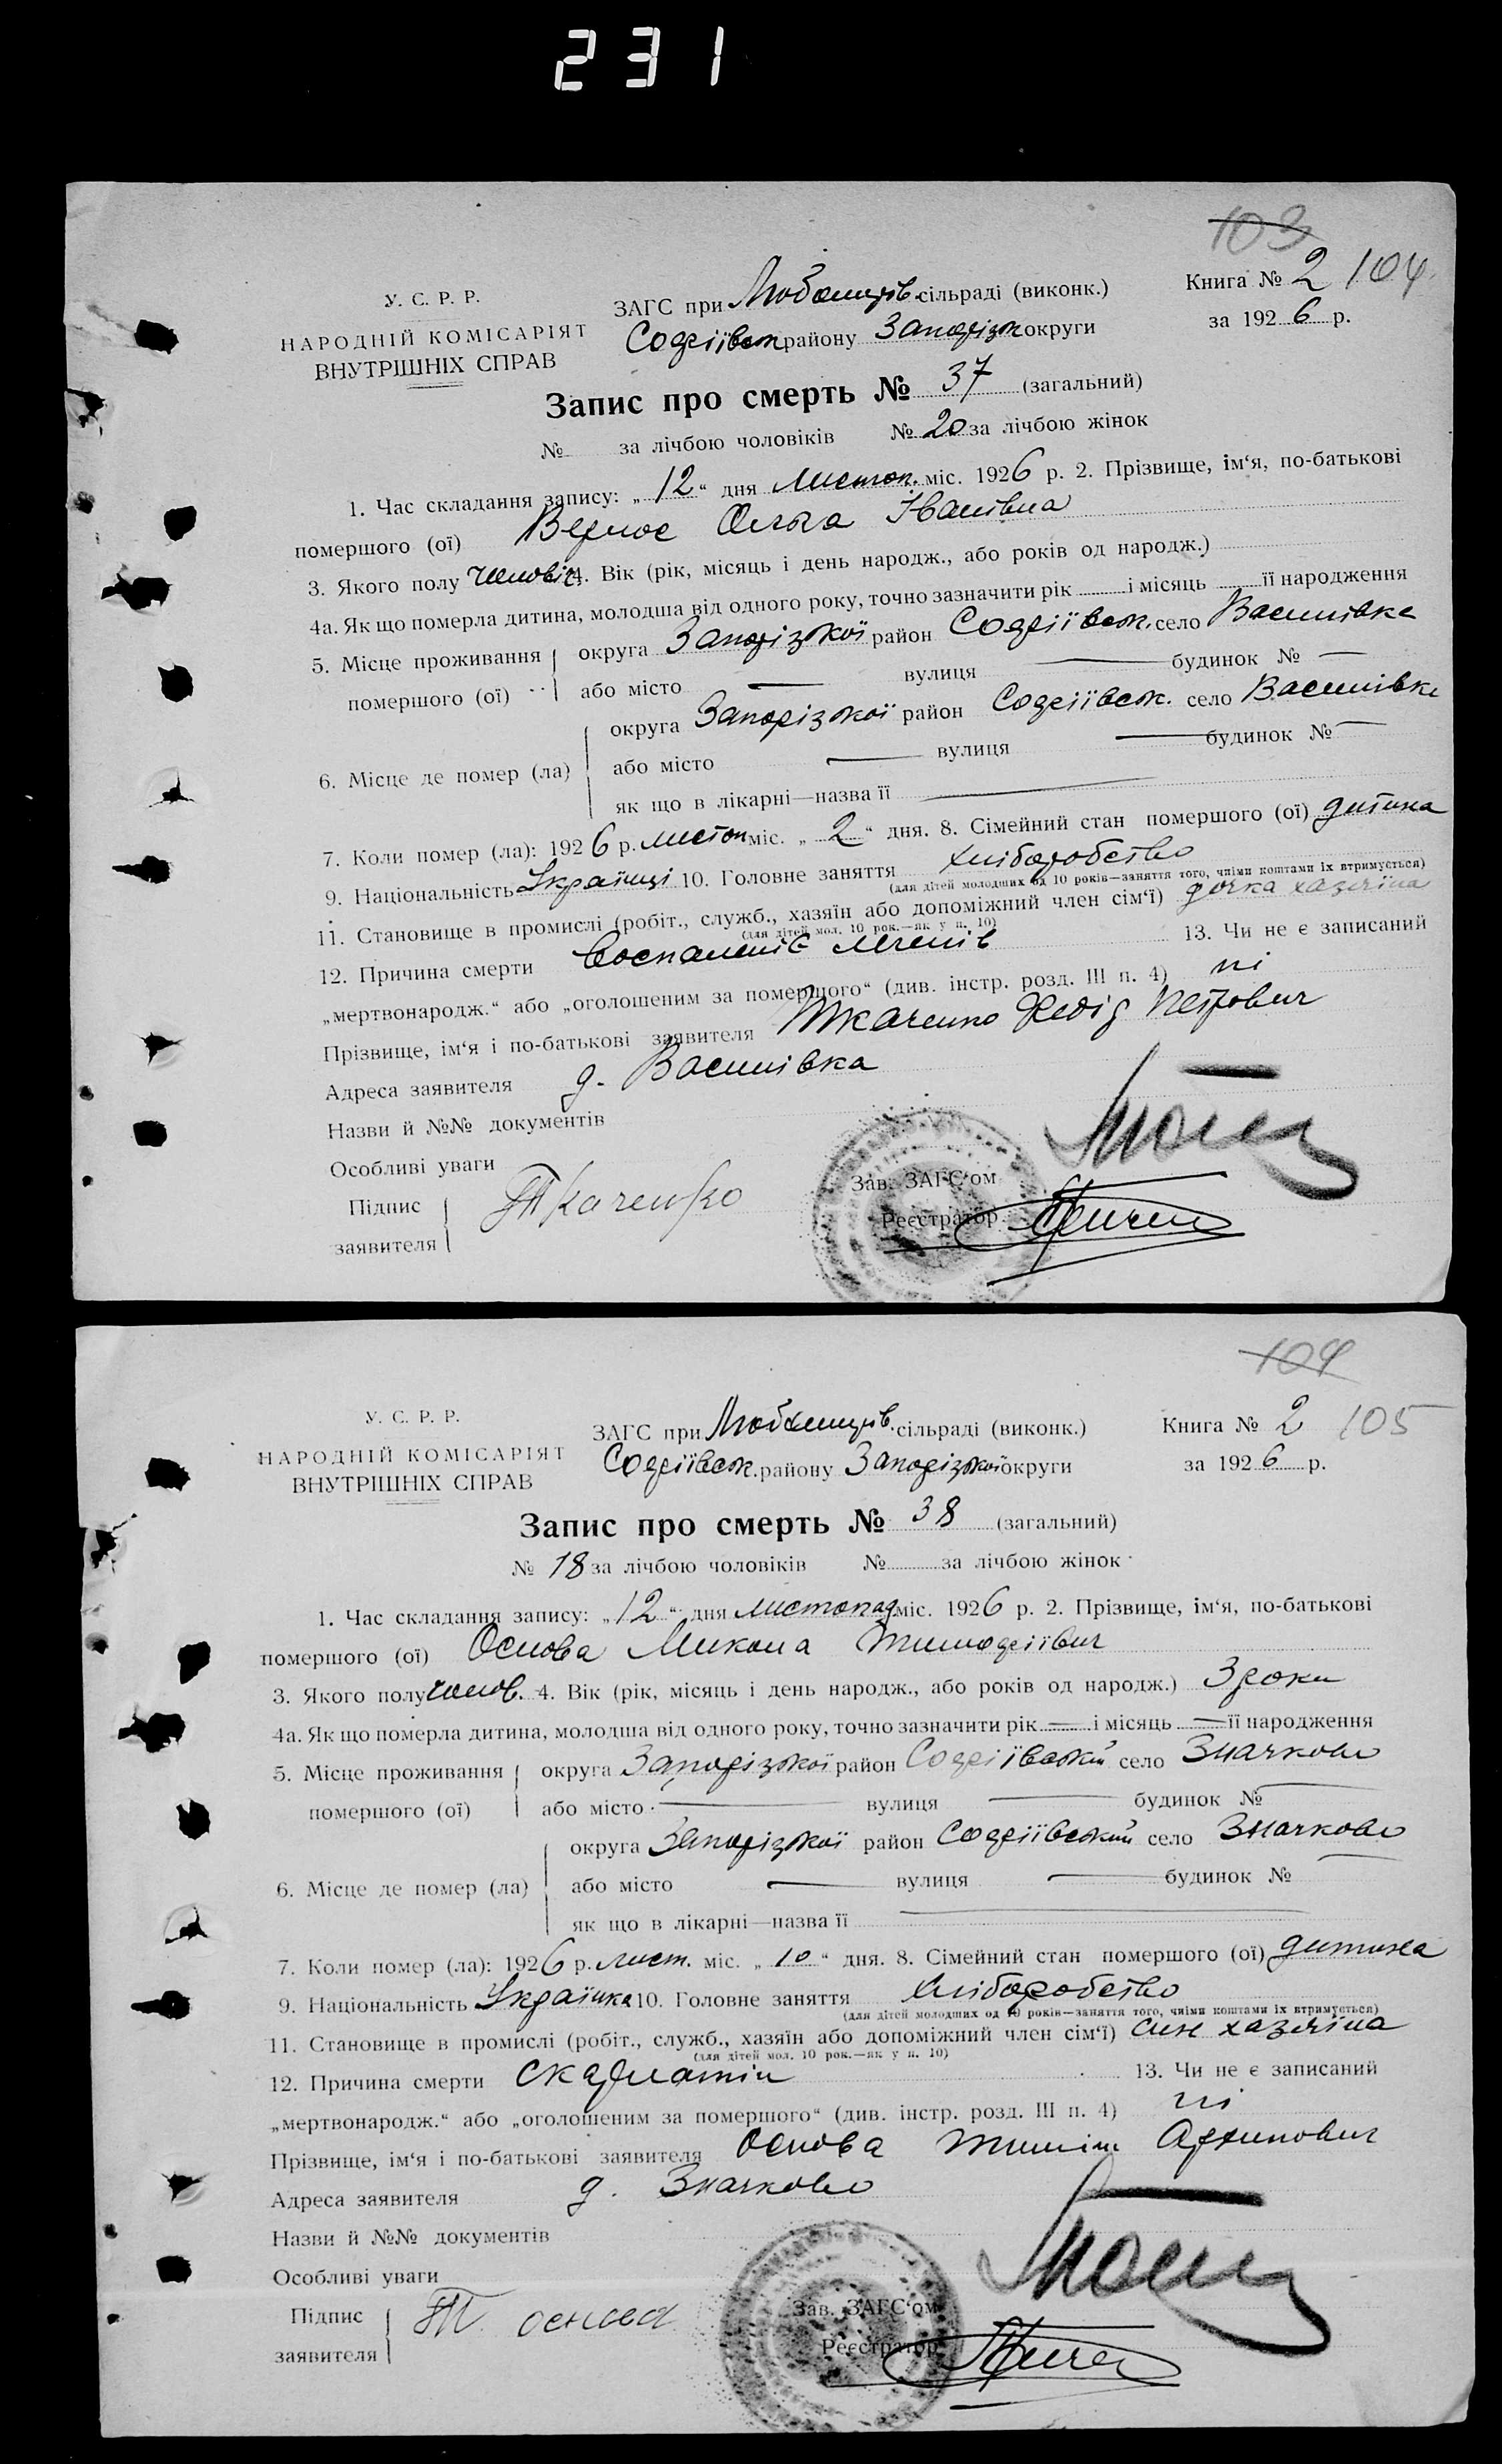 231
103
У. С. Р. Р. ЗАГС при Любомирів. сільраді (виконк.) Книга № 2 104
НАРОДНІЙ КОМІСАРІЯТ Софіївськ району Запорізьк округи за 1926 р.
ВНУТРІШНІХ СПРАВ
Запис про смерть № 37 (загальний)
№ за лічбою чоловіків № 20 за лічбою жінок
1. Час складання запису: „12“ дня Листоп. міс. 1926 р. 2. Прізвище, ім‘я, по-батькові
помершого (ої) Ольга Іванівна
3. Якого полу 4. Вік (рік, місяць і день народж., або років од народж.)
4а. Як що померла дитина, молодша від одного року, точно зазначити рік і місяць її народження
5. Місце проживання округа Запорізької район Софіївськ. село Василівка
помершого (ої) або місто — вулиця — будинок № —
округа Запорізької район Софіївськ. село Василівка
6. Місце де помер (ла) або місто — вулиця — будинок № —
як що в лікарні—назва її —
7. Коли помер (ла): 1926 р. листоп міс. „2“ дня. 8. Сімейний стан помершого (ої) дитина
9. Національність Українці 10. Головне заняття хліборобство
(для дітей молодших од 10 років—заняття того, чиїми коштами їх втримується)
11. Становище в промислі (робіт., служб., хазяїн або допоміжний член сім‘ї) дочка хазяїна
(для дітей мол. 10 рок.—як у п. 10)
12. Причина смерти 13. Чи не є записаний
„мертвонародж.“ або „оголошеним за помершого“ (див. інстр. розд. III п. 4) ні
Прізвище, ім‘я і по-батькові заявителя Ткаченко Петрович
Адреса заявителя д. Василівка
Назви й №№ документів
Особливі уваги
Підпис Ткаченко Зав. ЗАГС‘ом
заявителя Реєстратор
104
У. С. Р. Р. ЗАГС при Любомирів. сільраді (виконк.) Книга № 2 105
НАРОДНІЙ КОМІСАРІЯТ Софіївськ. району Запорізької округи за 1926 р.
ВНУТРІШНІХ СПРАВ
Запис про смерть № 38 (загальний)
№ 18 за лічбою чоловіків № за лічбою жінок
1. Час складання запису: „12“ дня листопад міс. 1926 р. 2. Прізвище, ім‘я, по-батькові
помершого (ої) Основа Микола Тимофіївич
3. Якого полу чолов. 4. Вік (рік, місяць і день народж., або років од народж.) 3 роки
4а. Як що померла дитина, молодша від одного року, точно зазначити рік — і місяць — її народження
5. Місце проживання округа Запорізької район Софіївський село Значково
помершого (ої) або місто — вулиця — будинок № —
округа Запорізької район Софіївський село Значково
6. Місце де помер (ла) або місто — вулиця — будинок № —
як що в лікарні—назва її —
7. Коли помер (ла): 1926 р. лист. міс. „10“ дня. 8. Сімейний стан помершого (ої) дитина
9. Національність Українка 10. Головне заняття хліборобство
(для дітей молодших од 10 років—заняття того, чиїми коштами їх втримується)
11. Становище в промислі (робіт., служб., хазяїн або допоміжний член сім‘ї) син хазяїна
(для дітей мол. 10 рок.—як у п. 10)
12. Причина смерти 13. Чи не є записаний
„мертвонародж.“ або „оголошеним за помершого“ (див. інстр. розд. III п. 4) ні
Прізвище, ім‘я і по-батькові заявителя Основа Архипович
Адреса заявителя д. Значково
Назви й №№ документів
Особливі уваги
Підпис Т. основа Зав. ЗАГС‘ом
заявителя Реєстратор